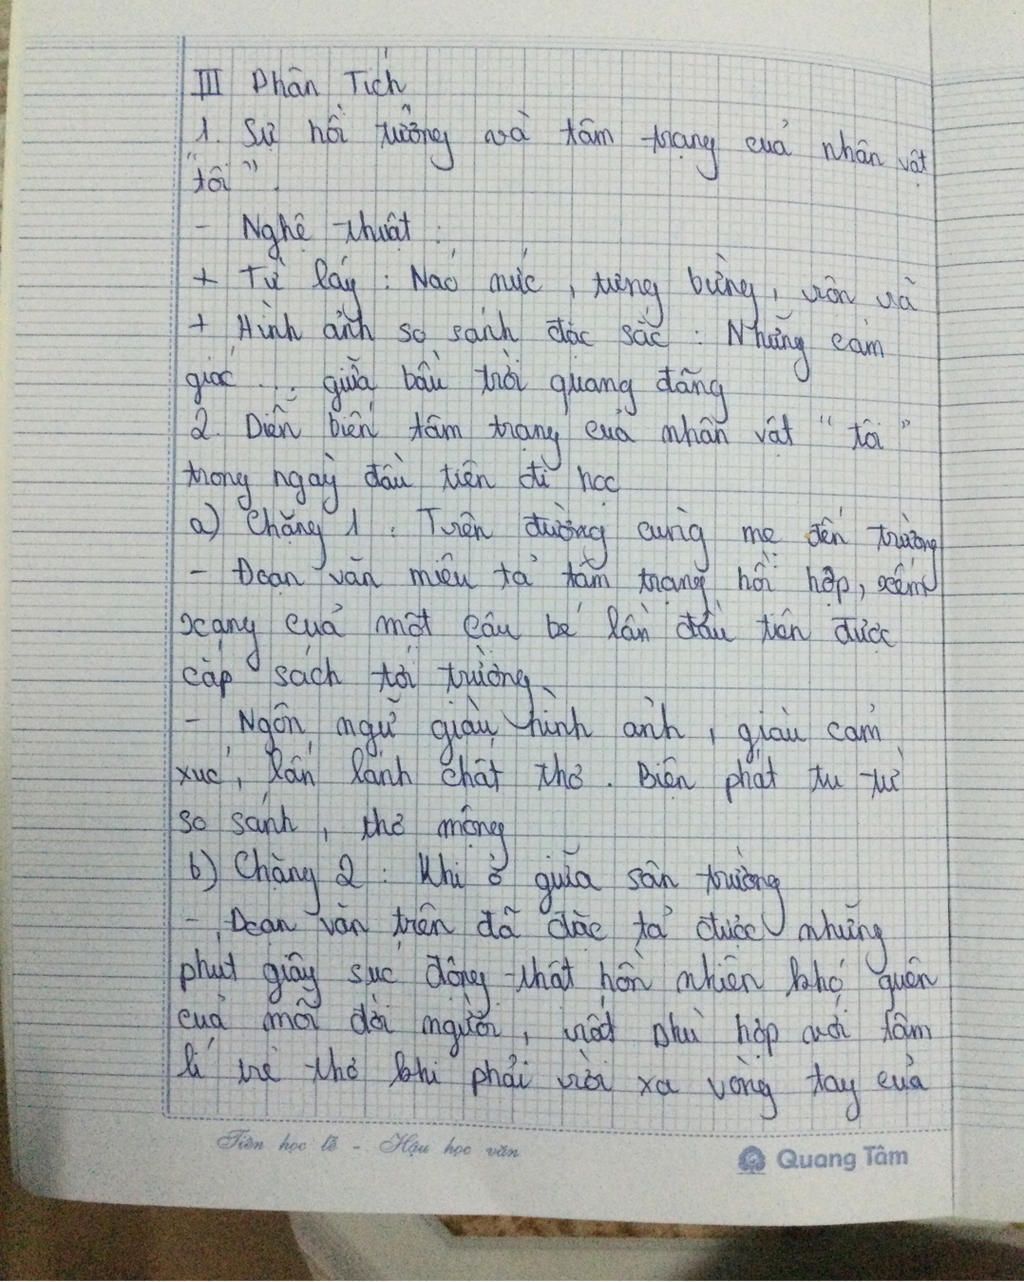 III Phân Tích
1. Sự hồi tưởng và tâm trạng của nhân vật
"tôi".
- Nghệ thuật:
+ Từ láy: Náo nức, tưng bừng, rộn rã
+ Hình ảnh so sánh đặc sắc: Những cảm
giác ... giữa bầu trời quang đãng
2. Diễn biến tâm trạng của nhân vật "tôi"
trong ngày đầu tiên đi học
a) Chặng 1: Trên đường cùng mẹ đến trường
- Đoạn văn miêu tả tâm trạng hồi hộp, xốn
xang của một cậu bé lần đầu tiên được
cắp sách tới trường
- Ngôn ngữ giàu hình ảnh, giàu cảm
xúc, lấn lánh chất thơ. Biện phát tu từ
so sánh, thơ mộng
b) Chặng 2: Khi ở giữa sân trường
- Đoạn văn trên đã đặc tả được những
phút giây xúc động thật hồn nhiên khó quên
của mỗi đời người, rất phù hợp với tâm
lí trẻ thơ khi phải rời xa vòng tay của
Tiên học lễ - Hậu học văn
Quang Tâm